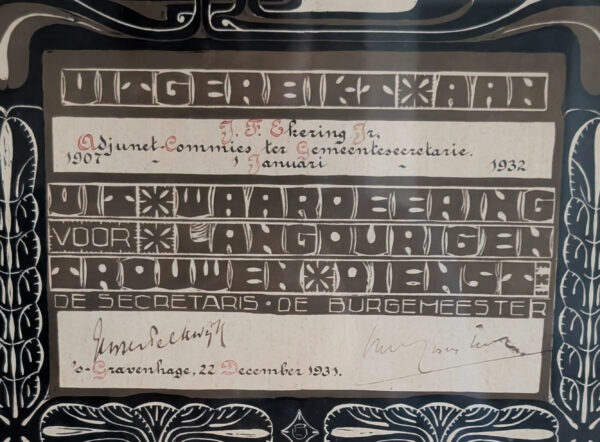 UITGEREIKT AAN
J. F. Ekering Jr.
Adjunct-Commies ter Gemeentesecretarie.
1907 - 1 Januari - 1932
UIT WAARDEERING
VOOR LANGDURIGEN
TROUWEN DIENST
DE SECRETARIS · DE BURGEMEESTER
's-Gravenhage, 22 December 1931.